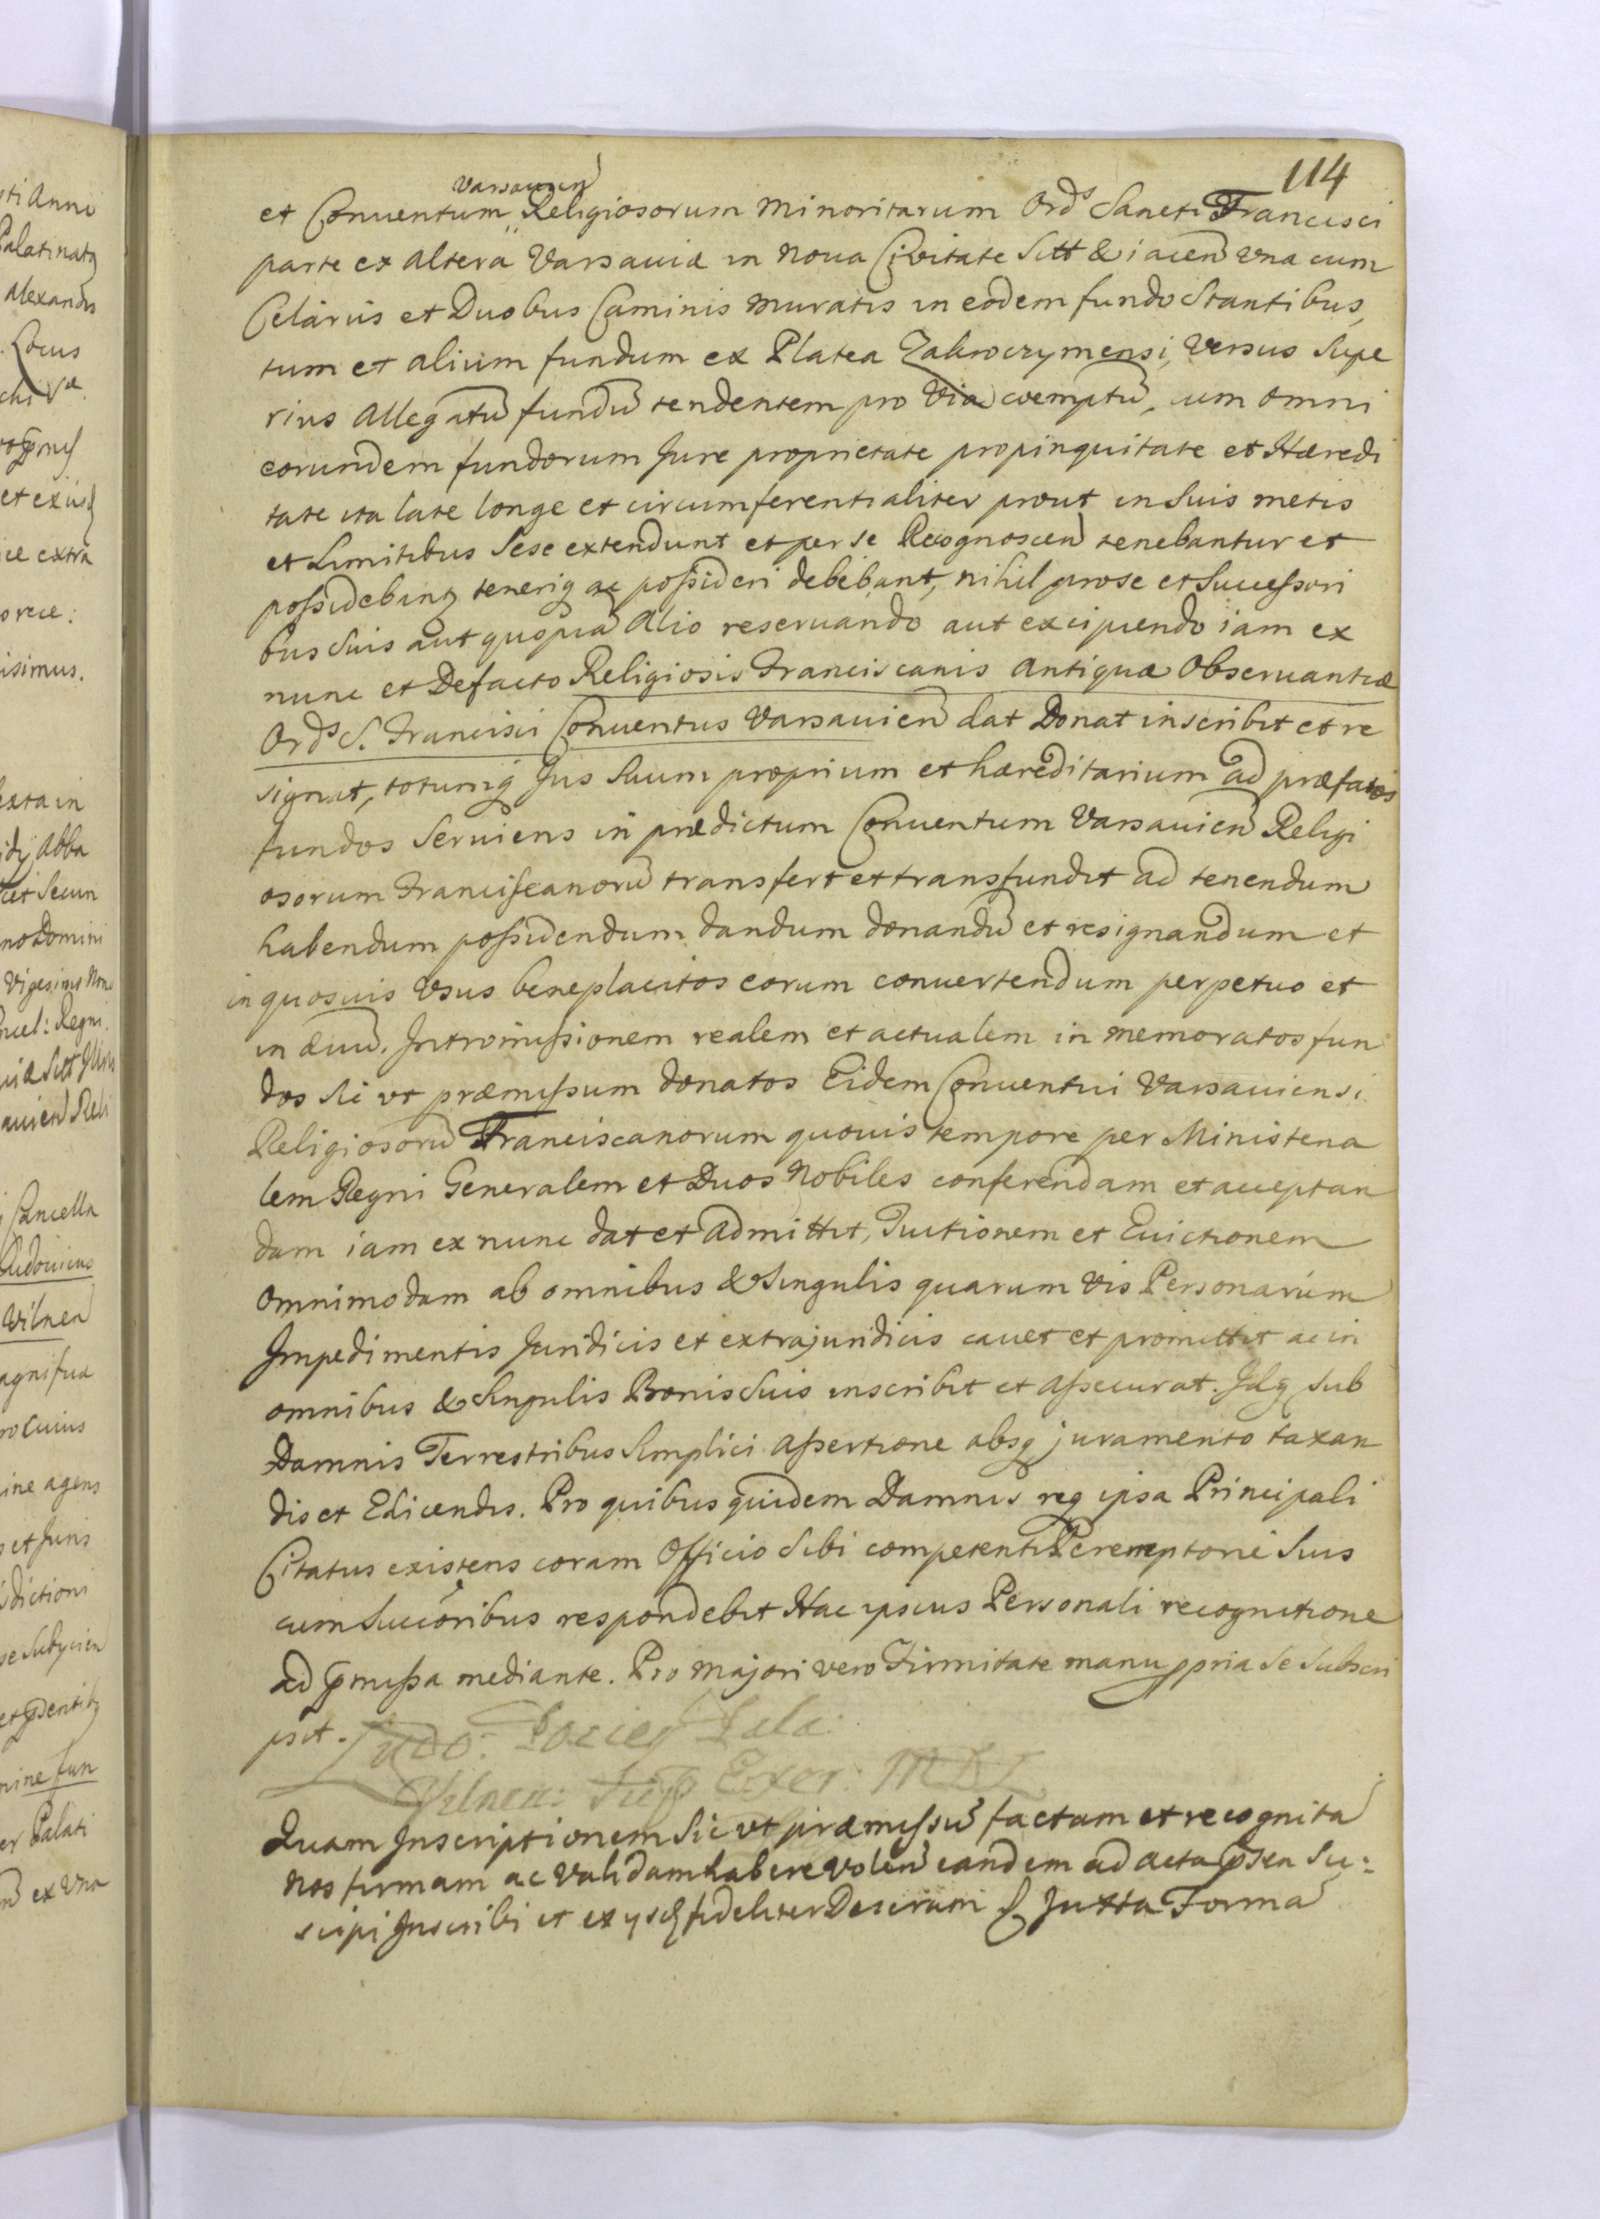 114
Varsavien
et Conuentum Religiosorum Minoritarum Ords Sancti Francisci
parte ex altera Varsauiæ in Noua Civitate Sitt & iacen vna cum
Celariis et Duobus Caminis muratis in eodem fundo Stantibus,
tum et alium fundum ex Platea Zakroczymensi, versus Supe
rius Allegatū fundū tendentem pro via coemptū, cum omni
eorundem fundorum Jure proprietate propinquitate et Hæredi
tate ita late longe et circumferentialiter prout in Suis metis
et Limitibus Sese extendunt et per se Recognoscen tenebantur et
possidebanq teneriq ac possideri debebant, nihil pro se et Successori
bus Suis aut quopiā Alio reseruando aut excipiendo iam ex
nunc et Defacto Religiosis Franciscanis Antiquæ Obseruantiæ
Ords S. Francisci Conuentus Varsauien dat Donat inscribit et re
signat, totumq Jus Suum proprium et hæreditarium ad præfatos
fundos Seruiens in prædictum Conuentum Varsauien Religi
osorum Franciscanorū transfert et transfundit ad tenendum
habendum possidendum dandum donandū et resignandum et
in quosuis Vsus beneplacitos eorum conuertendum perpetuo et
in æuū. Intromissionem realem et actualem in memoratos fun
dos Sic vt præmissum donatos Eidem Conuentui Varsauiensi
Religiosorū Franciscanorum quouis tempore per Ministeria
lem Regni Generalem et Duos Nobiles conferendam et acceptan
dam iam ex nunc dat et Admittit, Tuitionem et Euictionem
Omnimodam ab omnibus & Singulis quarum vis Personarum
Impedimentis Juridicis et extrajuridicis cauet et promittit ac in
omnibus & Singulis Bonis Suis inscribit et assecurat. Idq Sub
Damnis Terrestribus Simplici Assertione absq juramento taxan
dis et Edicendis. Pro quibus quidem Damnis req ipsa Principali
Citatus existens coram Officio Sibi competenti Peremptorie Suis
cum Succōribus respondebit Hac ipsius Personali recognitione
ad pmissa mediante. Pro majori vero Firmitate manu ppria Se Subscri
psit. Ludo: Pociey Pala:
Vilnen: Sup Exer: MDL
Quam Inscriptionem Sic vt præmissū factam et recognitā
Nos firmam ac Validam habere Volen eandem ad acta psen Su:
scipi Inscribi et ex ysd fideliter Describi Juxta Formā